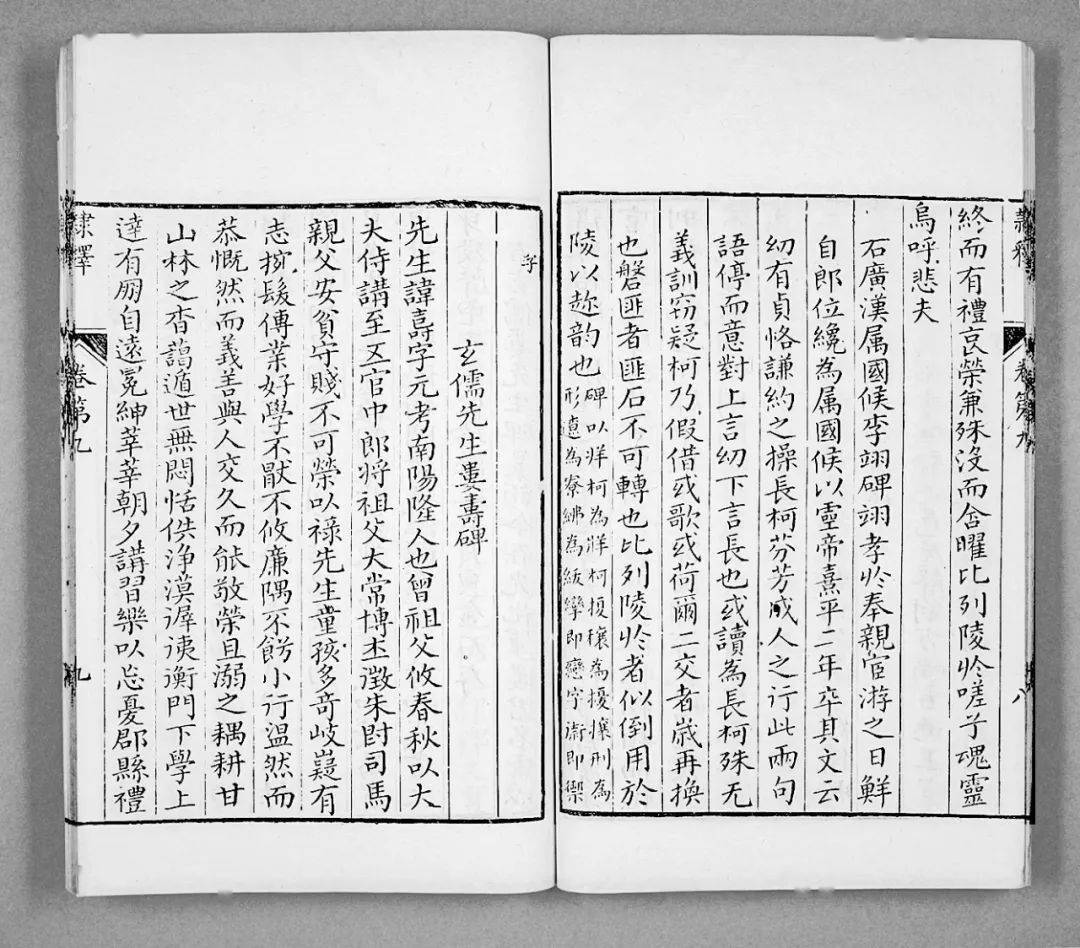 隸釋 卷第九 八
終而有禮哀榮兼殊沒而含曜比列陵於嗟子魂靈
烏呼悲夫
石廣漢属國候李翊碑翊孝於奉親宦游之日鮮
自郎位纔為属國候以靈帝熹平二年卒其文云
幼有貞恪謙約之操長柯芬芳成人之行此兩句
語停而意對上言幼下言長也或讀為長柯殊无
義訓窃疑柯乃假借或歌或荷爾二交者歲再換
也磐匪者匪石不可轉也比列陵於者似倒用於
陵以趂韵也
碑以牂柯為牂柯擾穰為擾攘刑為
形為寮紼為紱孿即戀字衞即禦
字
玄儒先生婁壽碑
先生諱壽字元考南陽隆人也曾祖父攸春秋以大
夫侍講至五官中郎將祖父大常博士徵朱爵司馬
親父安貧守賤不可榮以禄先生童孩多奇岐嶷有
志捥髮傳業好學不猒不攸廉隅不飭小行温然而
恭慨然而義善與人交久而能敬榮且溺之耦耕甘
山林之杳藹遁世無悶恬佚浄漠徲衡門下學上
逹有朋自遠冕紳莘莘朝夕講習樂以忘憂郡縣禮
隸釋 卷第九 九